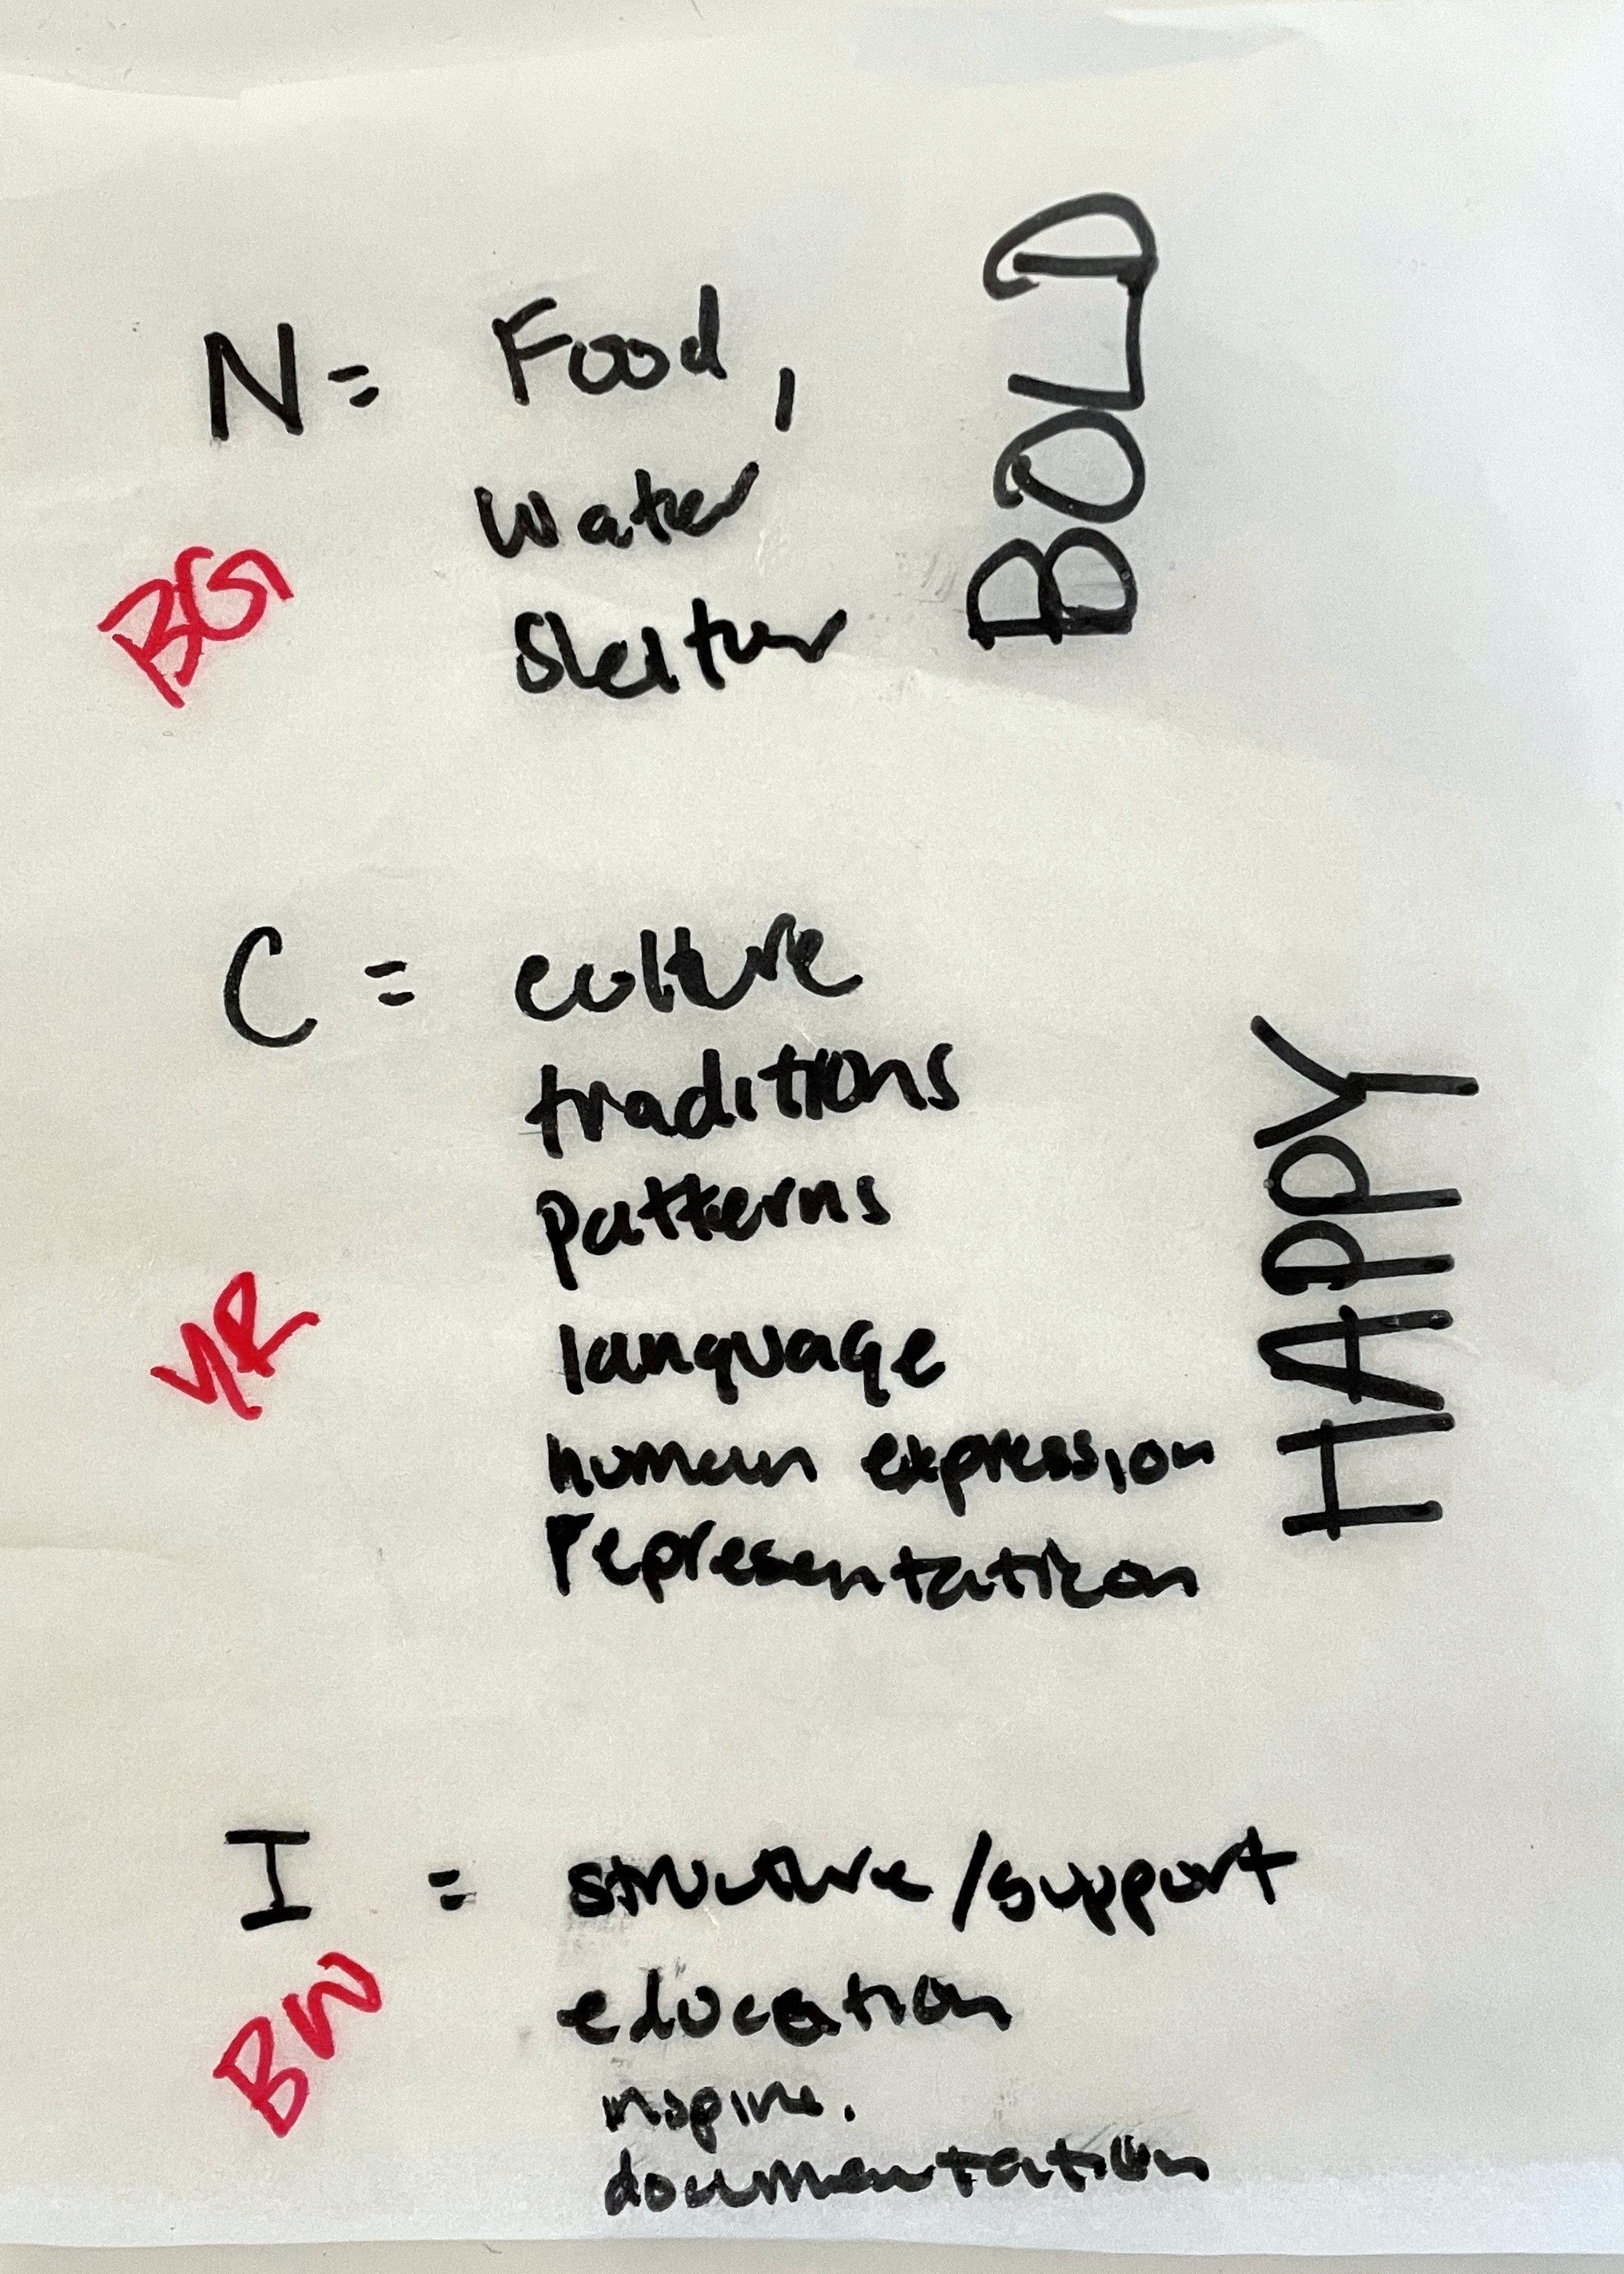 N = Food,
Water
Shelter
BG
BOLD
C = culture
traditions
patterns
language
human expression
representation
YR
HAPPY
I = structure/support
education
inspire.
documentation
BW